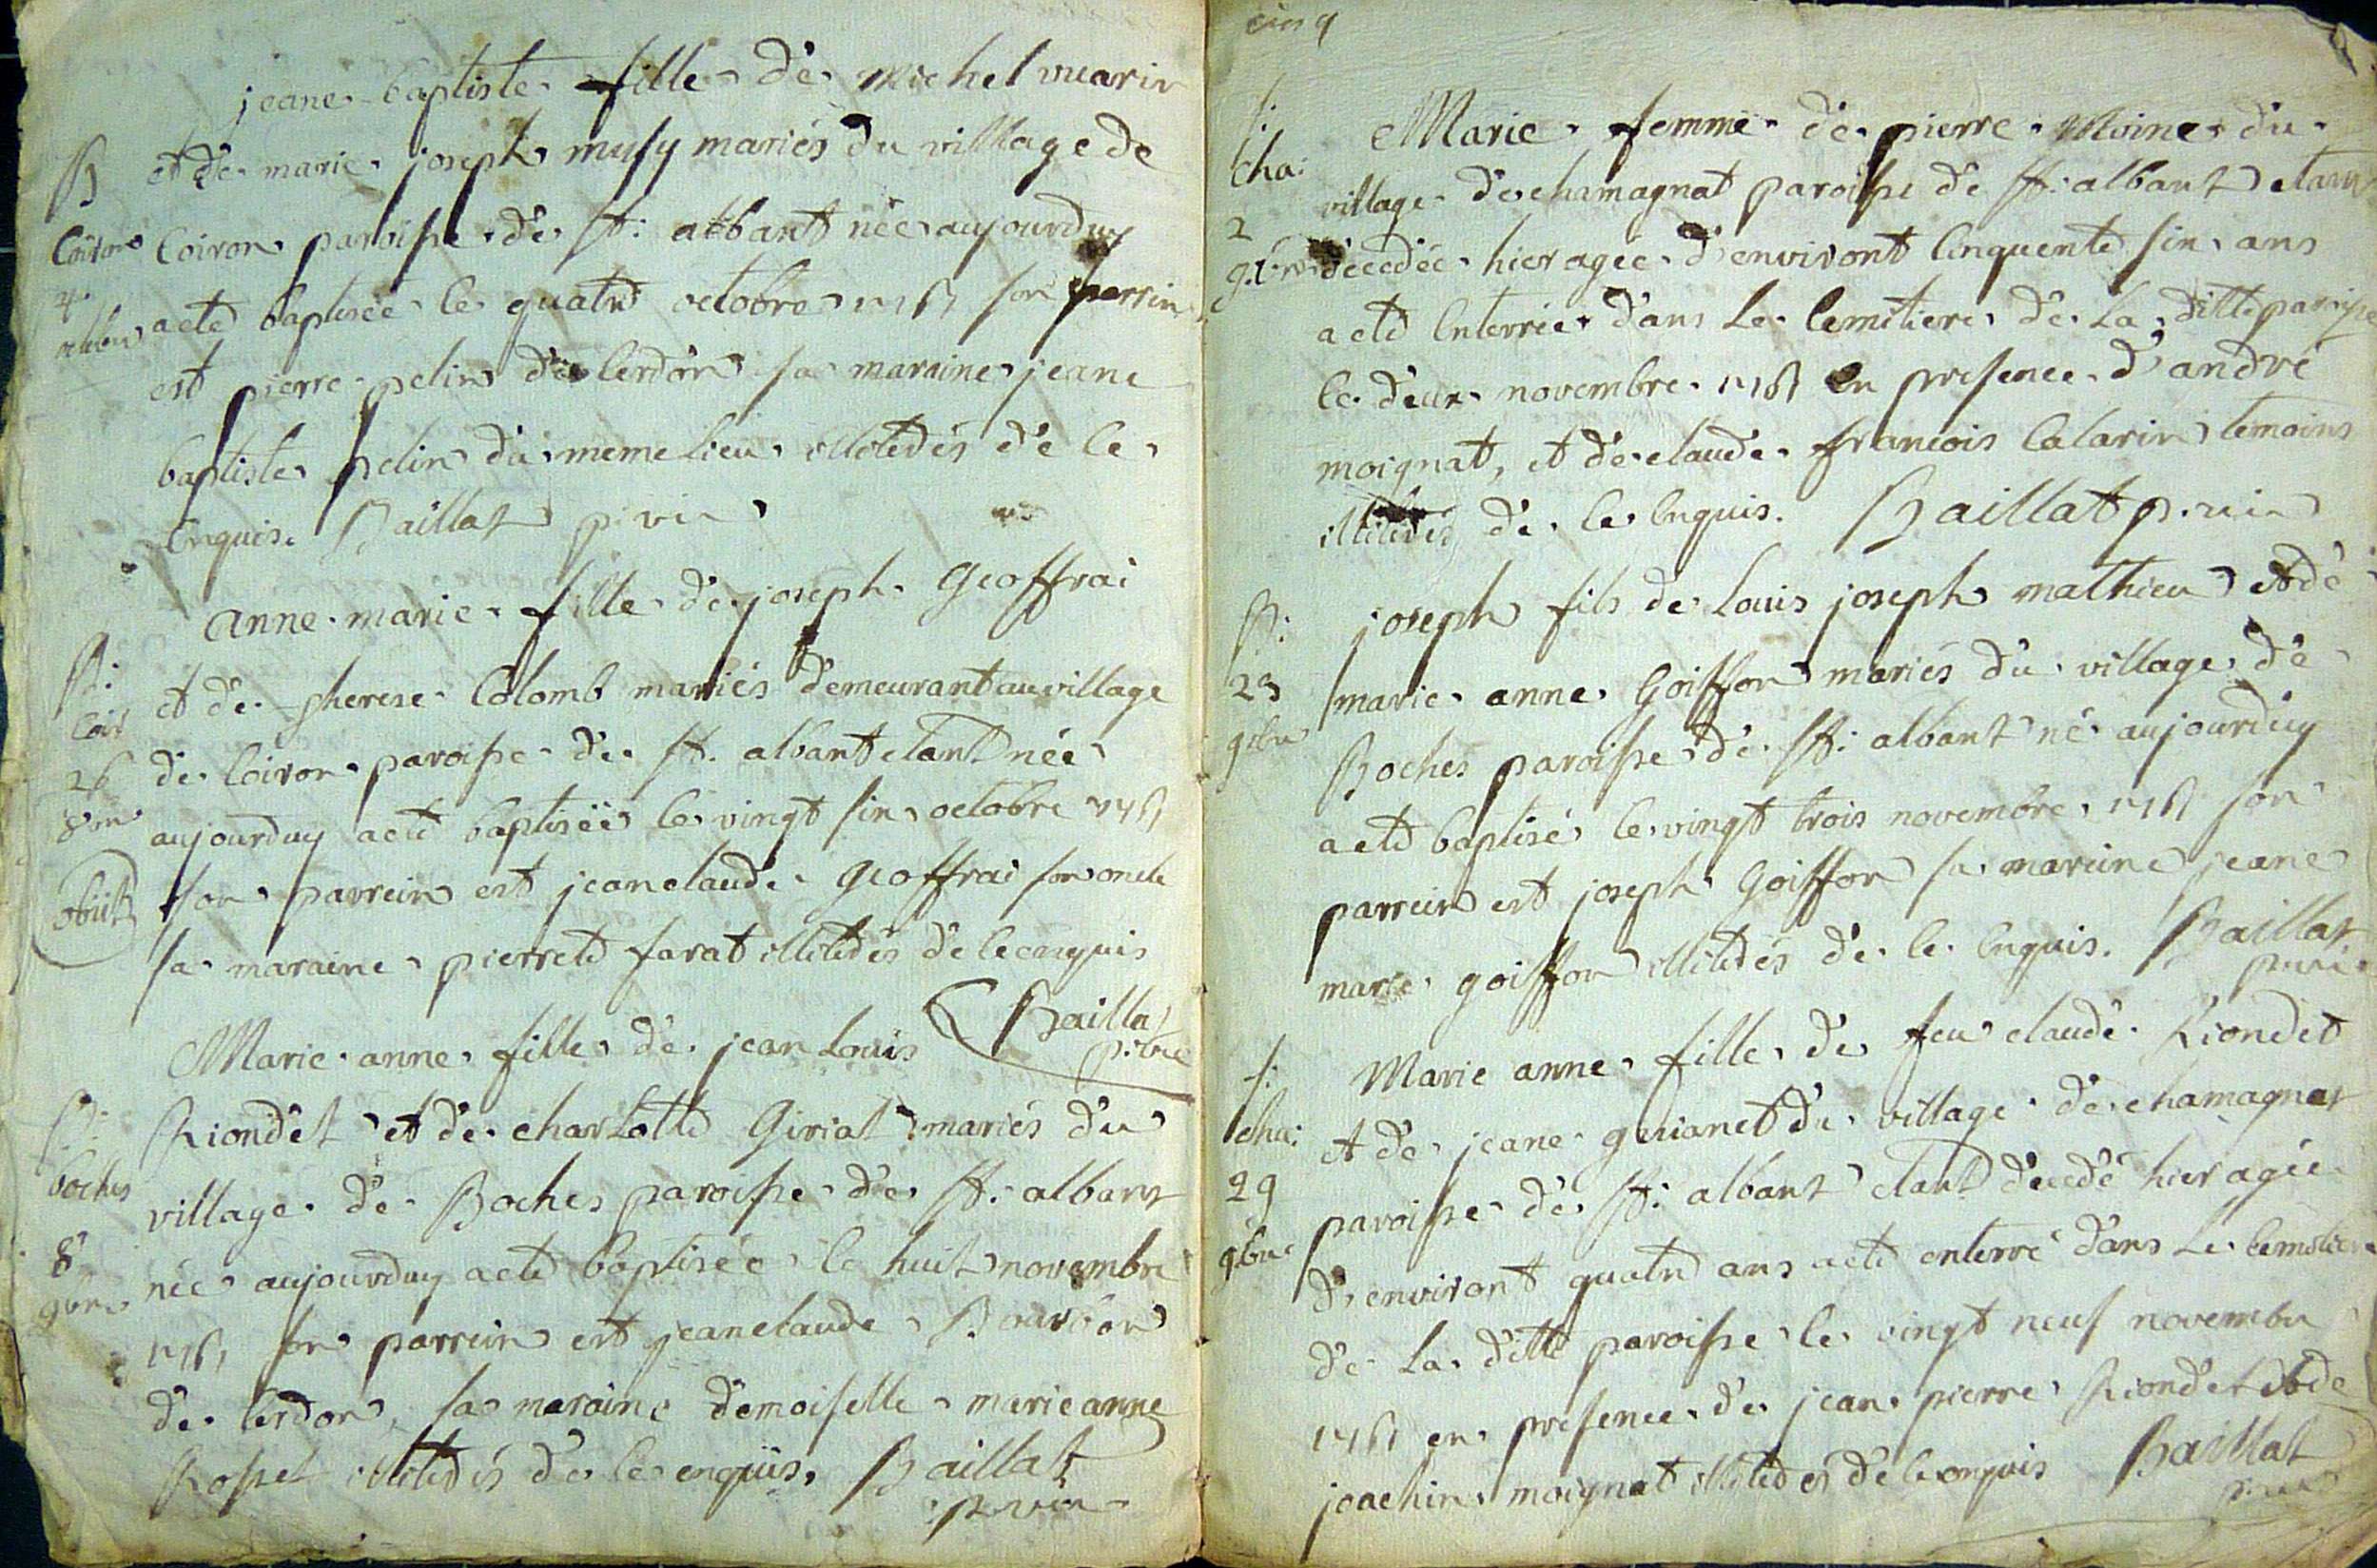 jeane baptiste fille de michel vuarin
B et de marie joseph musy mariés du village de
Coiron Coiron paroisse de St: albant née aujourduy
4 a eté baptisée le quatre octobre 1761 son parrin
est pierre pelin de Cerdon sa maraine jeane
baptiste pelin du meme lieu illitedés de ce
Enquis. Baillat p. vic
anne marie fille de joseph Geoffrai
B: et de therese Colomb mariés demeurant au village
Coir de Coiron paroisse de St. albant etant née
26 aujourduy a eté baptisëé le vingt six octobre 1761
8bre
obiit son parrein est jean claude Geoffrai son oncle
sa maraine pierrete favat illitedés de ce enquis
Baillat
p. vic
Marie anne fille de jean Louis
B: Riondet et de charlotte Giriat mariés du
boches village de Boches paroisse de St: albant
8 née aujourduy a eté baptisée le huit novembre
9bre 1761 son parrein est jean claude Bourbon
de Cerdon, sa maraine demoiselle marie anne
Rosset illitedés de ce enquis, Baillat
p. vic
cinq
f: Marie femme de pierre Moine du
cha: village de chamagnat paroisse de St: albant etant
2
9bre decedée hier agée d'environt Cinquente six ans
a eté Enterrée dans Le Cemetiere de La ditte paroisse
le deux novembre 1761 En presence d'andré
moignat, et de claude francois Calarin temoins
illitedés de ce Enquis. Baillat p. vic
B: joseph fils de Louis joseph mathieu et de
23 marie anne Goiffon mariés du village de
9bre Boches paroisse de St: albant né aujourduy
a eté baptisé le vingt trois novembre 1761 son
parrein est joseph Goiffon sa mareine jeane
marie goiffon illitedés de ce Enquis. Baillat
p. vic
f: Marie anne fille de feu claude Riondet
cha: et de jeane guianet du village de chamagnat
29 paroisse de St: albant etant decedé hier agée
9bre d'environt quatre ans a eté enterré dans Le Cemetiere
de La ditte paroisse le vingt neuf novembre
1761 en presence de jean pierre Riondet et de
joachin moignat illitedés de ce enquis Baillat